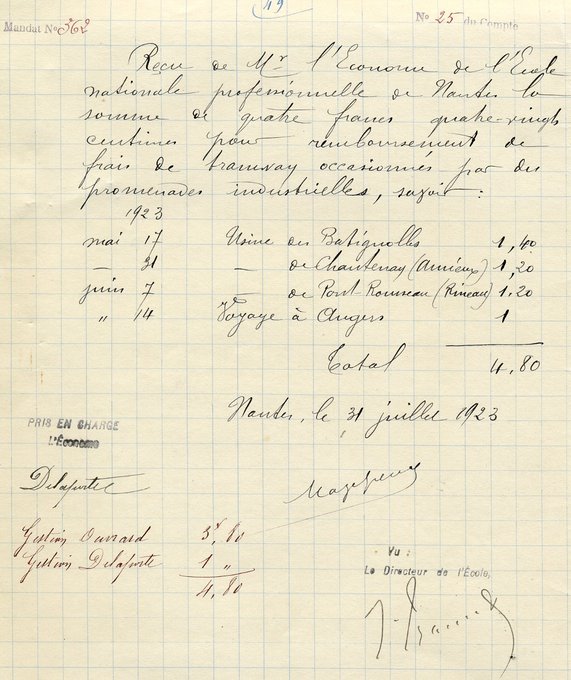 49
Mandat No 362
No 25 du Compte
Reçu de Mr l'Econome de l'Ecole
nationale professionnelle de Nantes la
somme de quatre francs quatre-vingts
centimes pour remboursement de
frais de tramway occasionnés par des
promenades industrielles, savoir :
1923
mai 17 Usine des Batignolles 1,40
— 31 — de Chantenay (Amieux) 1,20
juin 7 — de Pont Rousseau (Rineau) 1,20
" 14 Voyage à Angers 1
Total 4,80
Nantes, le 31 juillet 1923
PRIS EN CHARGE
L'Économe
Delaporte
Gestion Ouvrard 3f,80
Gestion Delaporte 1 "
4,80
Vu :
Le Directeur de l'École,